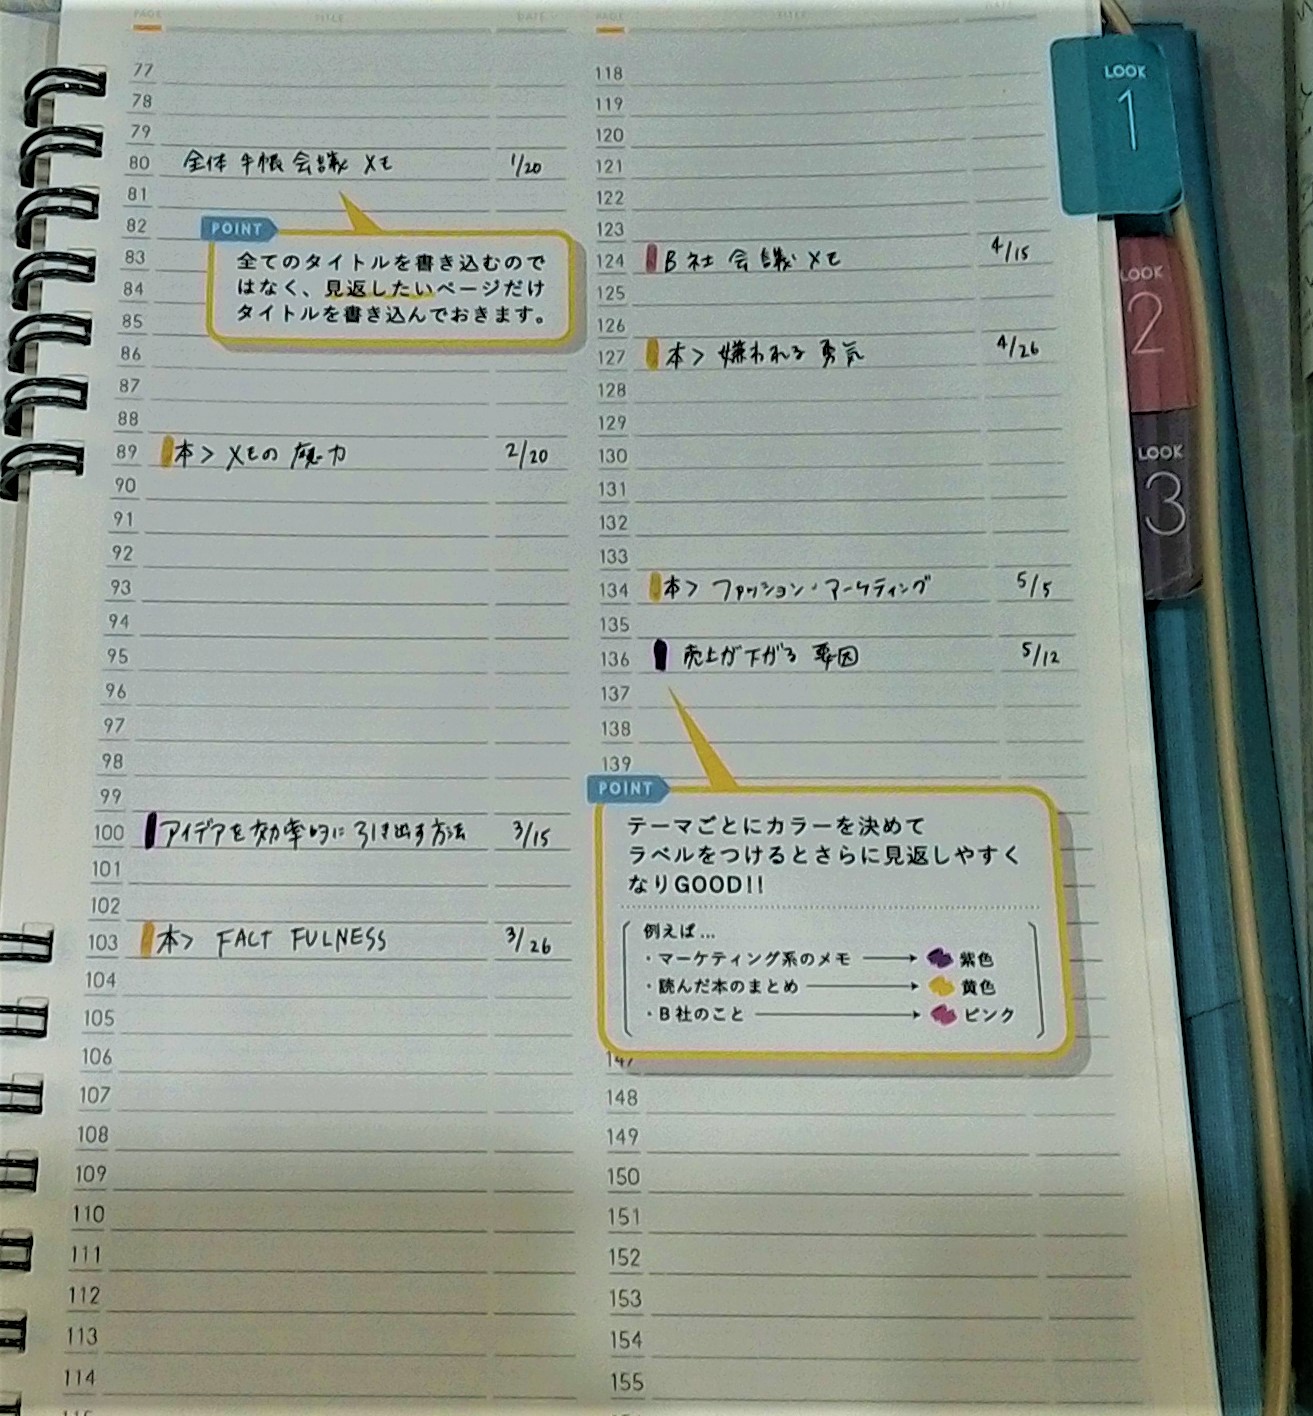 PAGE TITLE DATE
77
78
79
80 全体手帳会議メモ 1/20
81
82
POINT
全てのタイトルを書き込むので
はなく、見返したいページだけ
タイトルを書き込んでおきます。
83
84
85
86
87
88
89 本> メモの魔力 2/20
90
91
92
93
94
95
96
97
98
99
100 アイデアを効率的に引き出す方法 3/15
101
102
103 本> FACT FULNESS 3/26
104
105
106
107
108
109
110
111
112
113
114
115
PAGE TITLE DATE
118
119
120
121
122
123
124 B社会議メモ 4/15
125
126
127 本> 嫌われる勇気 4/26
128
129
130
131
132
133
134 本> ファッション・マーケティング 5/5
135
136 売上が下がる要因 5/12
137
138
139
POINT
テーマごとにカラーを決めて
ラベルをつけるとさらに見返しやすく
なりGOOD!!
例えば…
・マーケティング系のメモ → 紫色
・読んだ本のまとめ → 黄色
・B社のこと → ピンク
147
148
149
150
151
152
153
154
155
LOOK
1
LOOK
2
LOOK
3